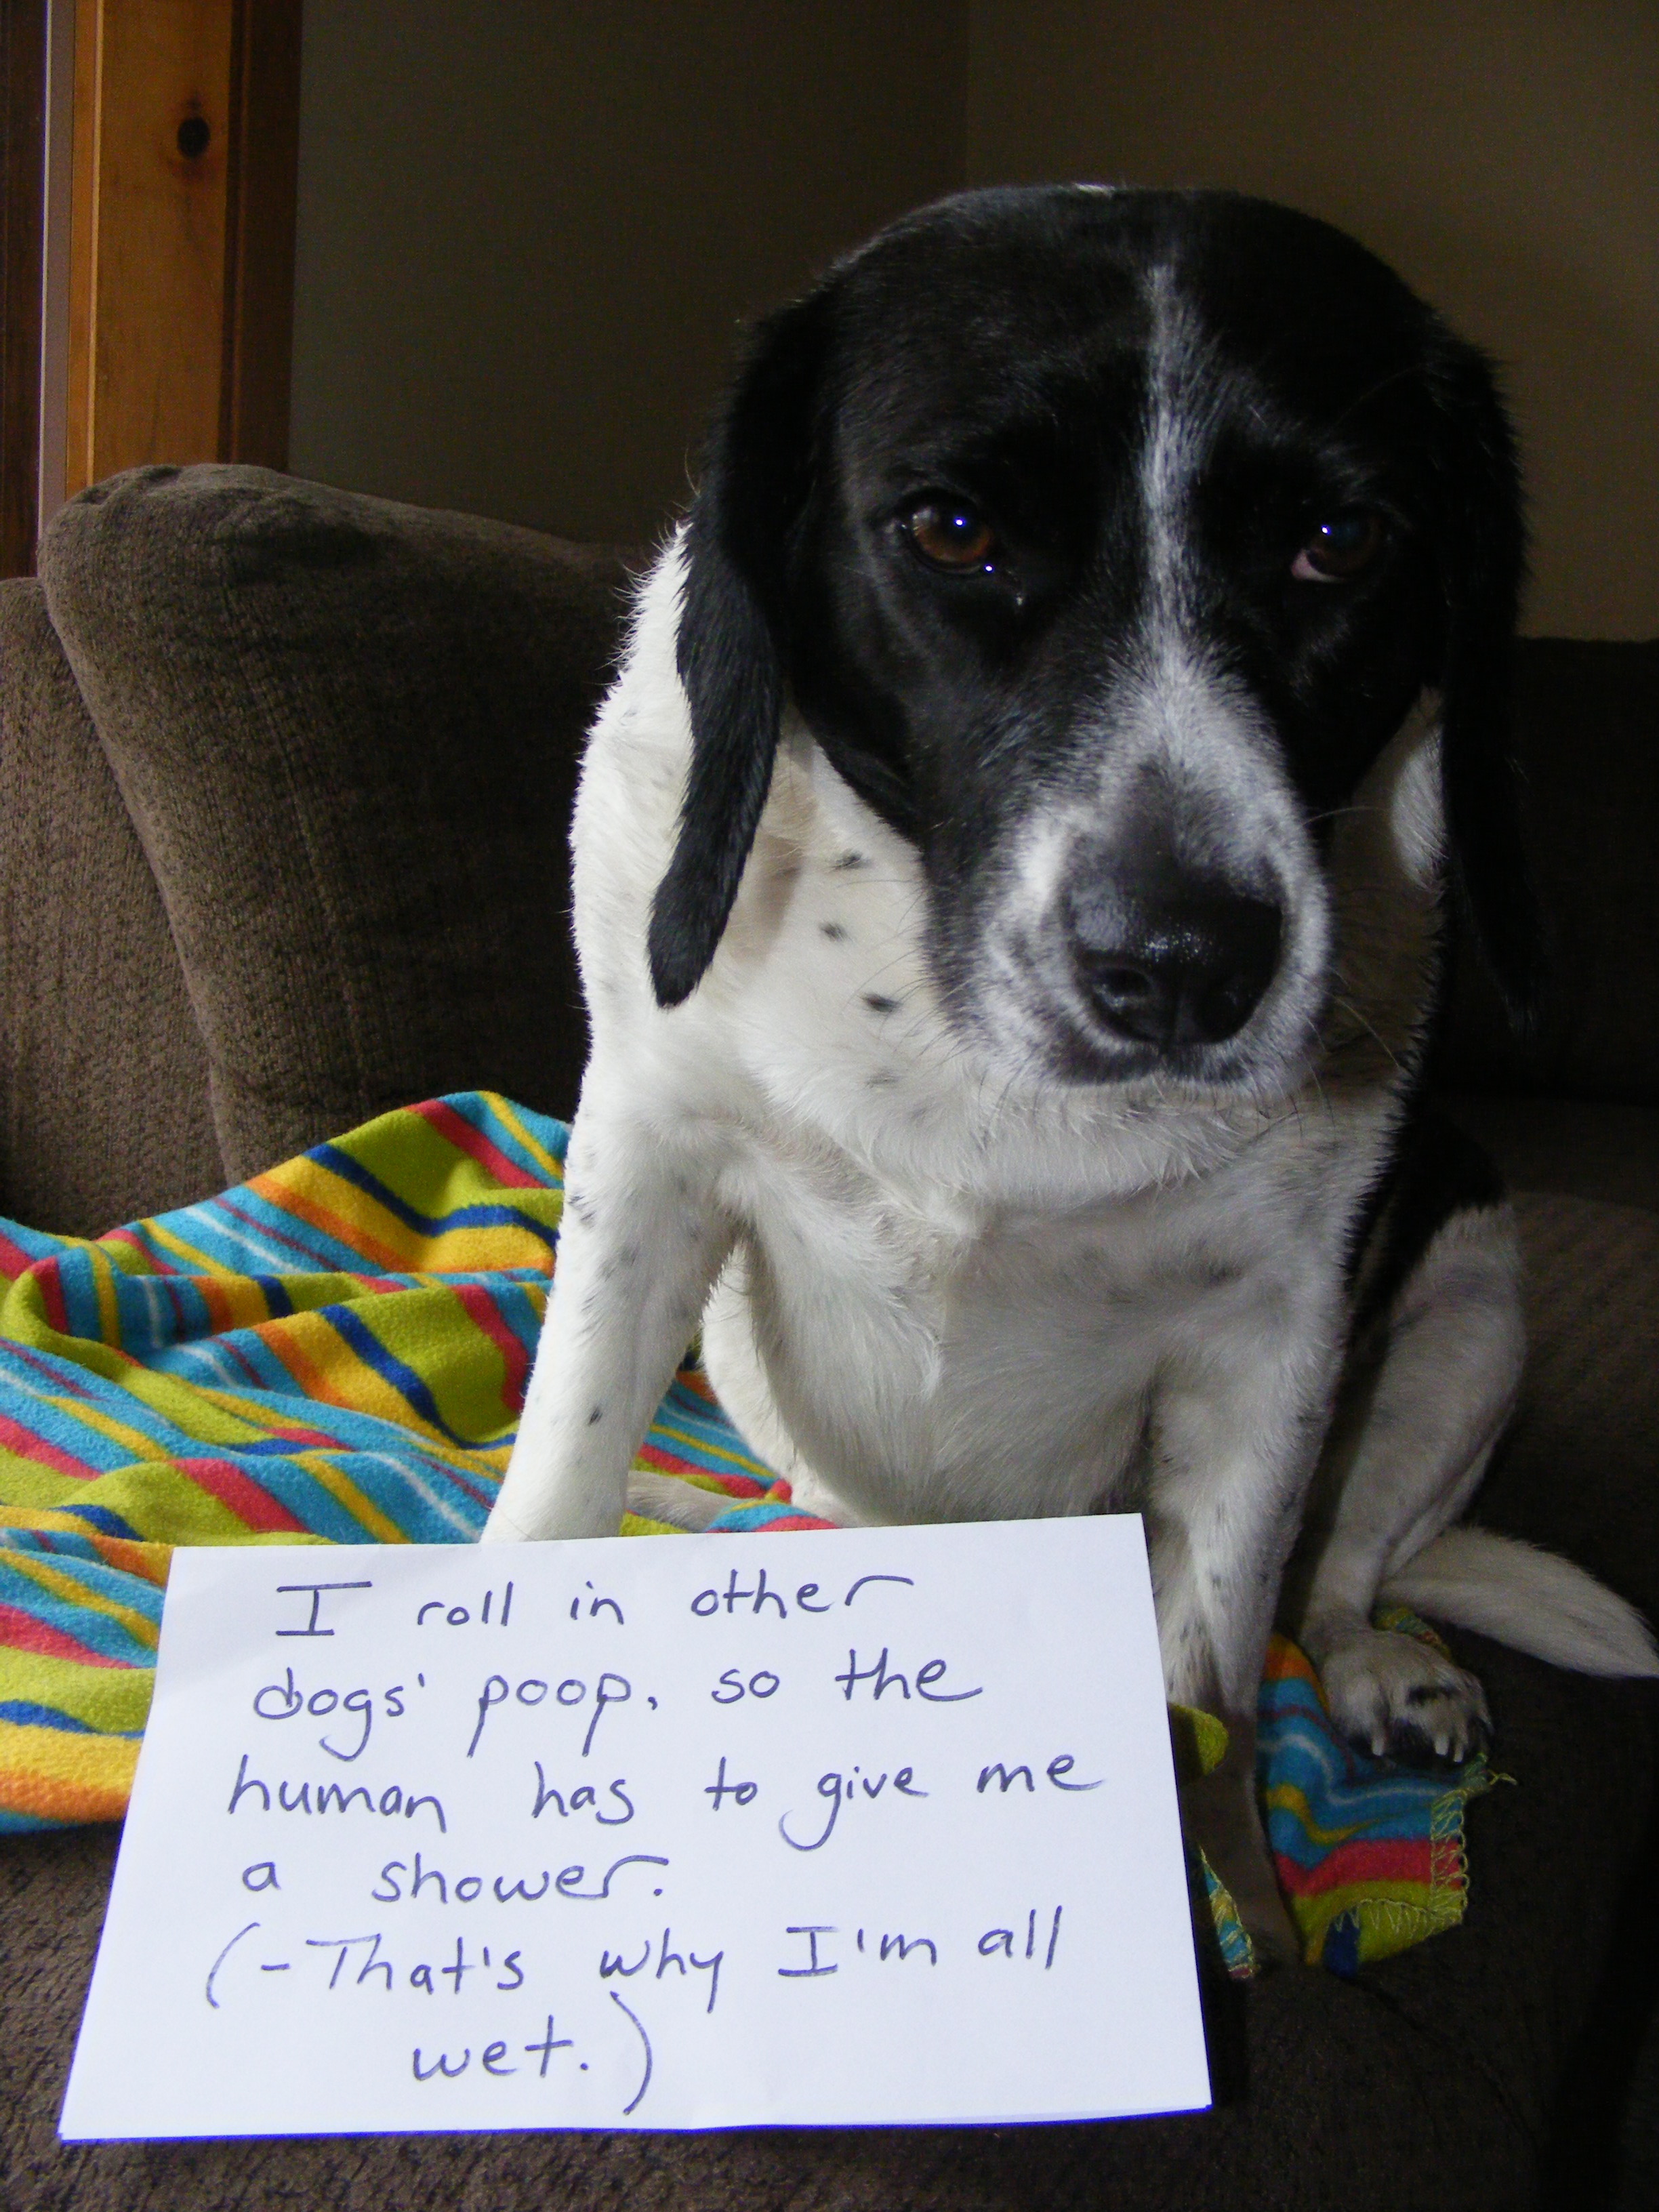 I roll in other
dogs' poop, so the
human has to give me
a shower.
(-That's why I'm all
wet.)